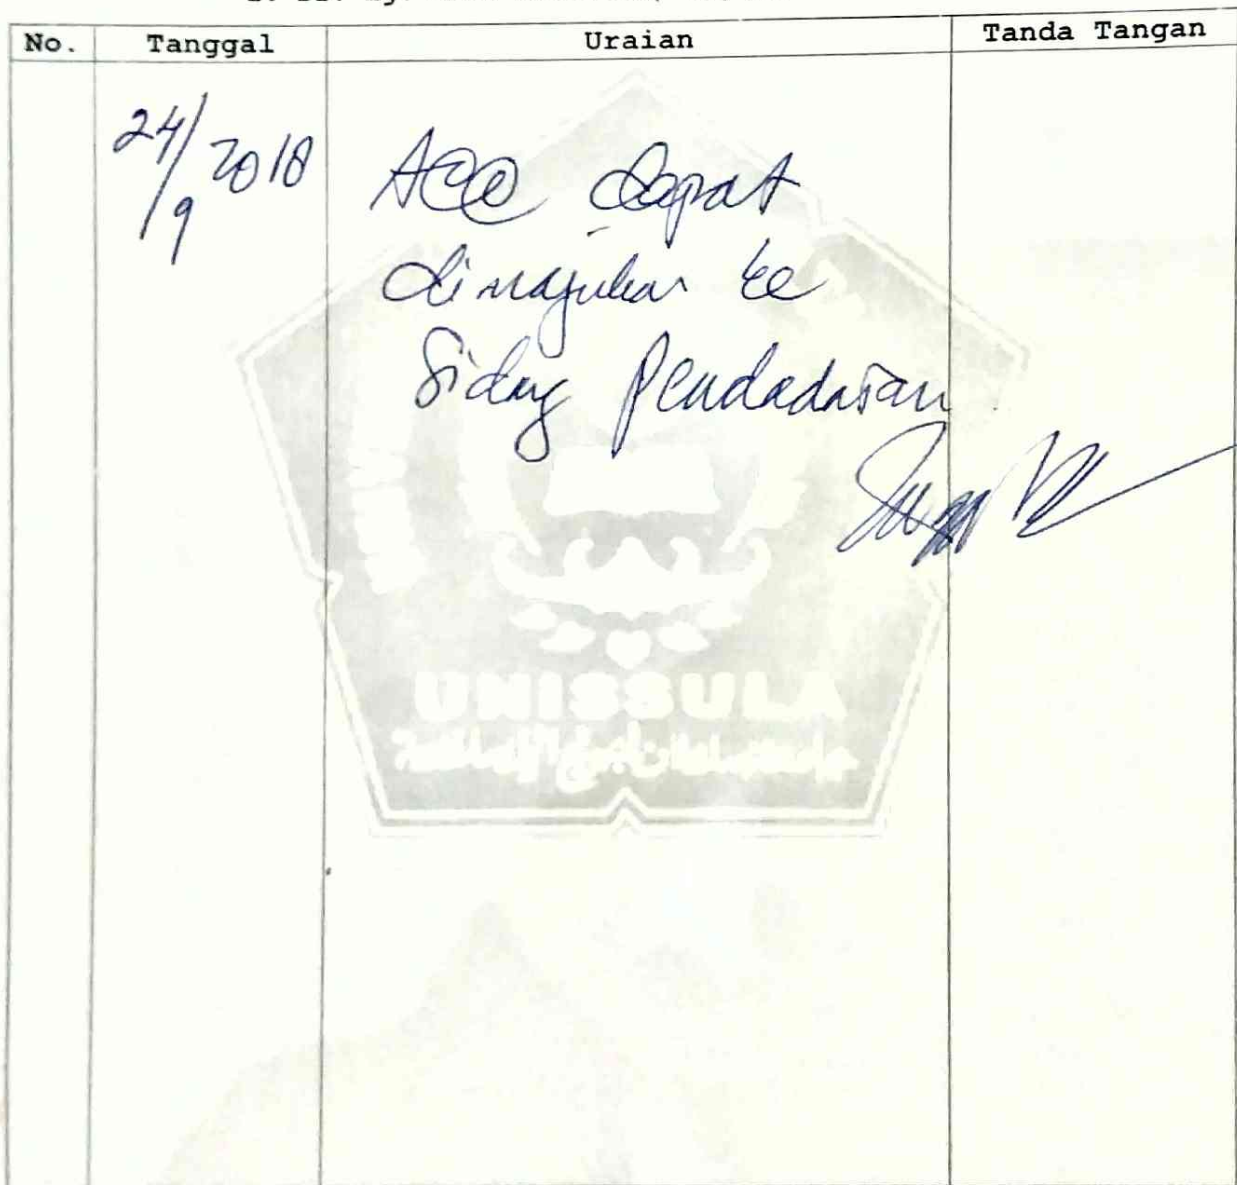 No. Tanggal Uraian Tanda Tangan
24/9 2018
ACC dapat
dimajukan ke
Sidang Pendadaran
UNISSULA